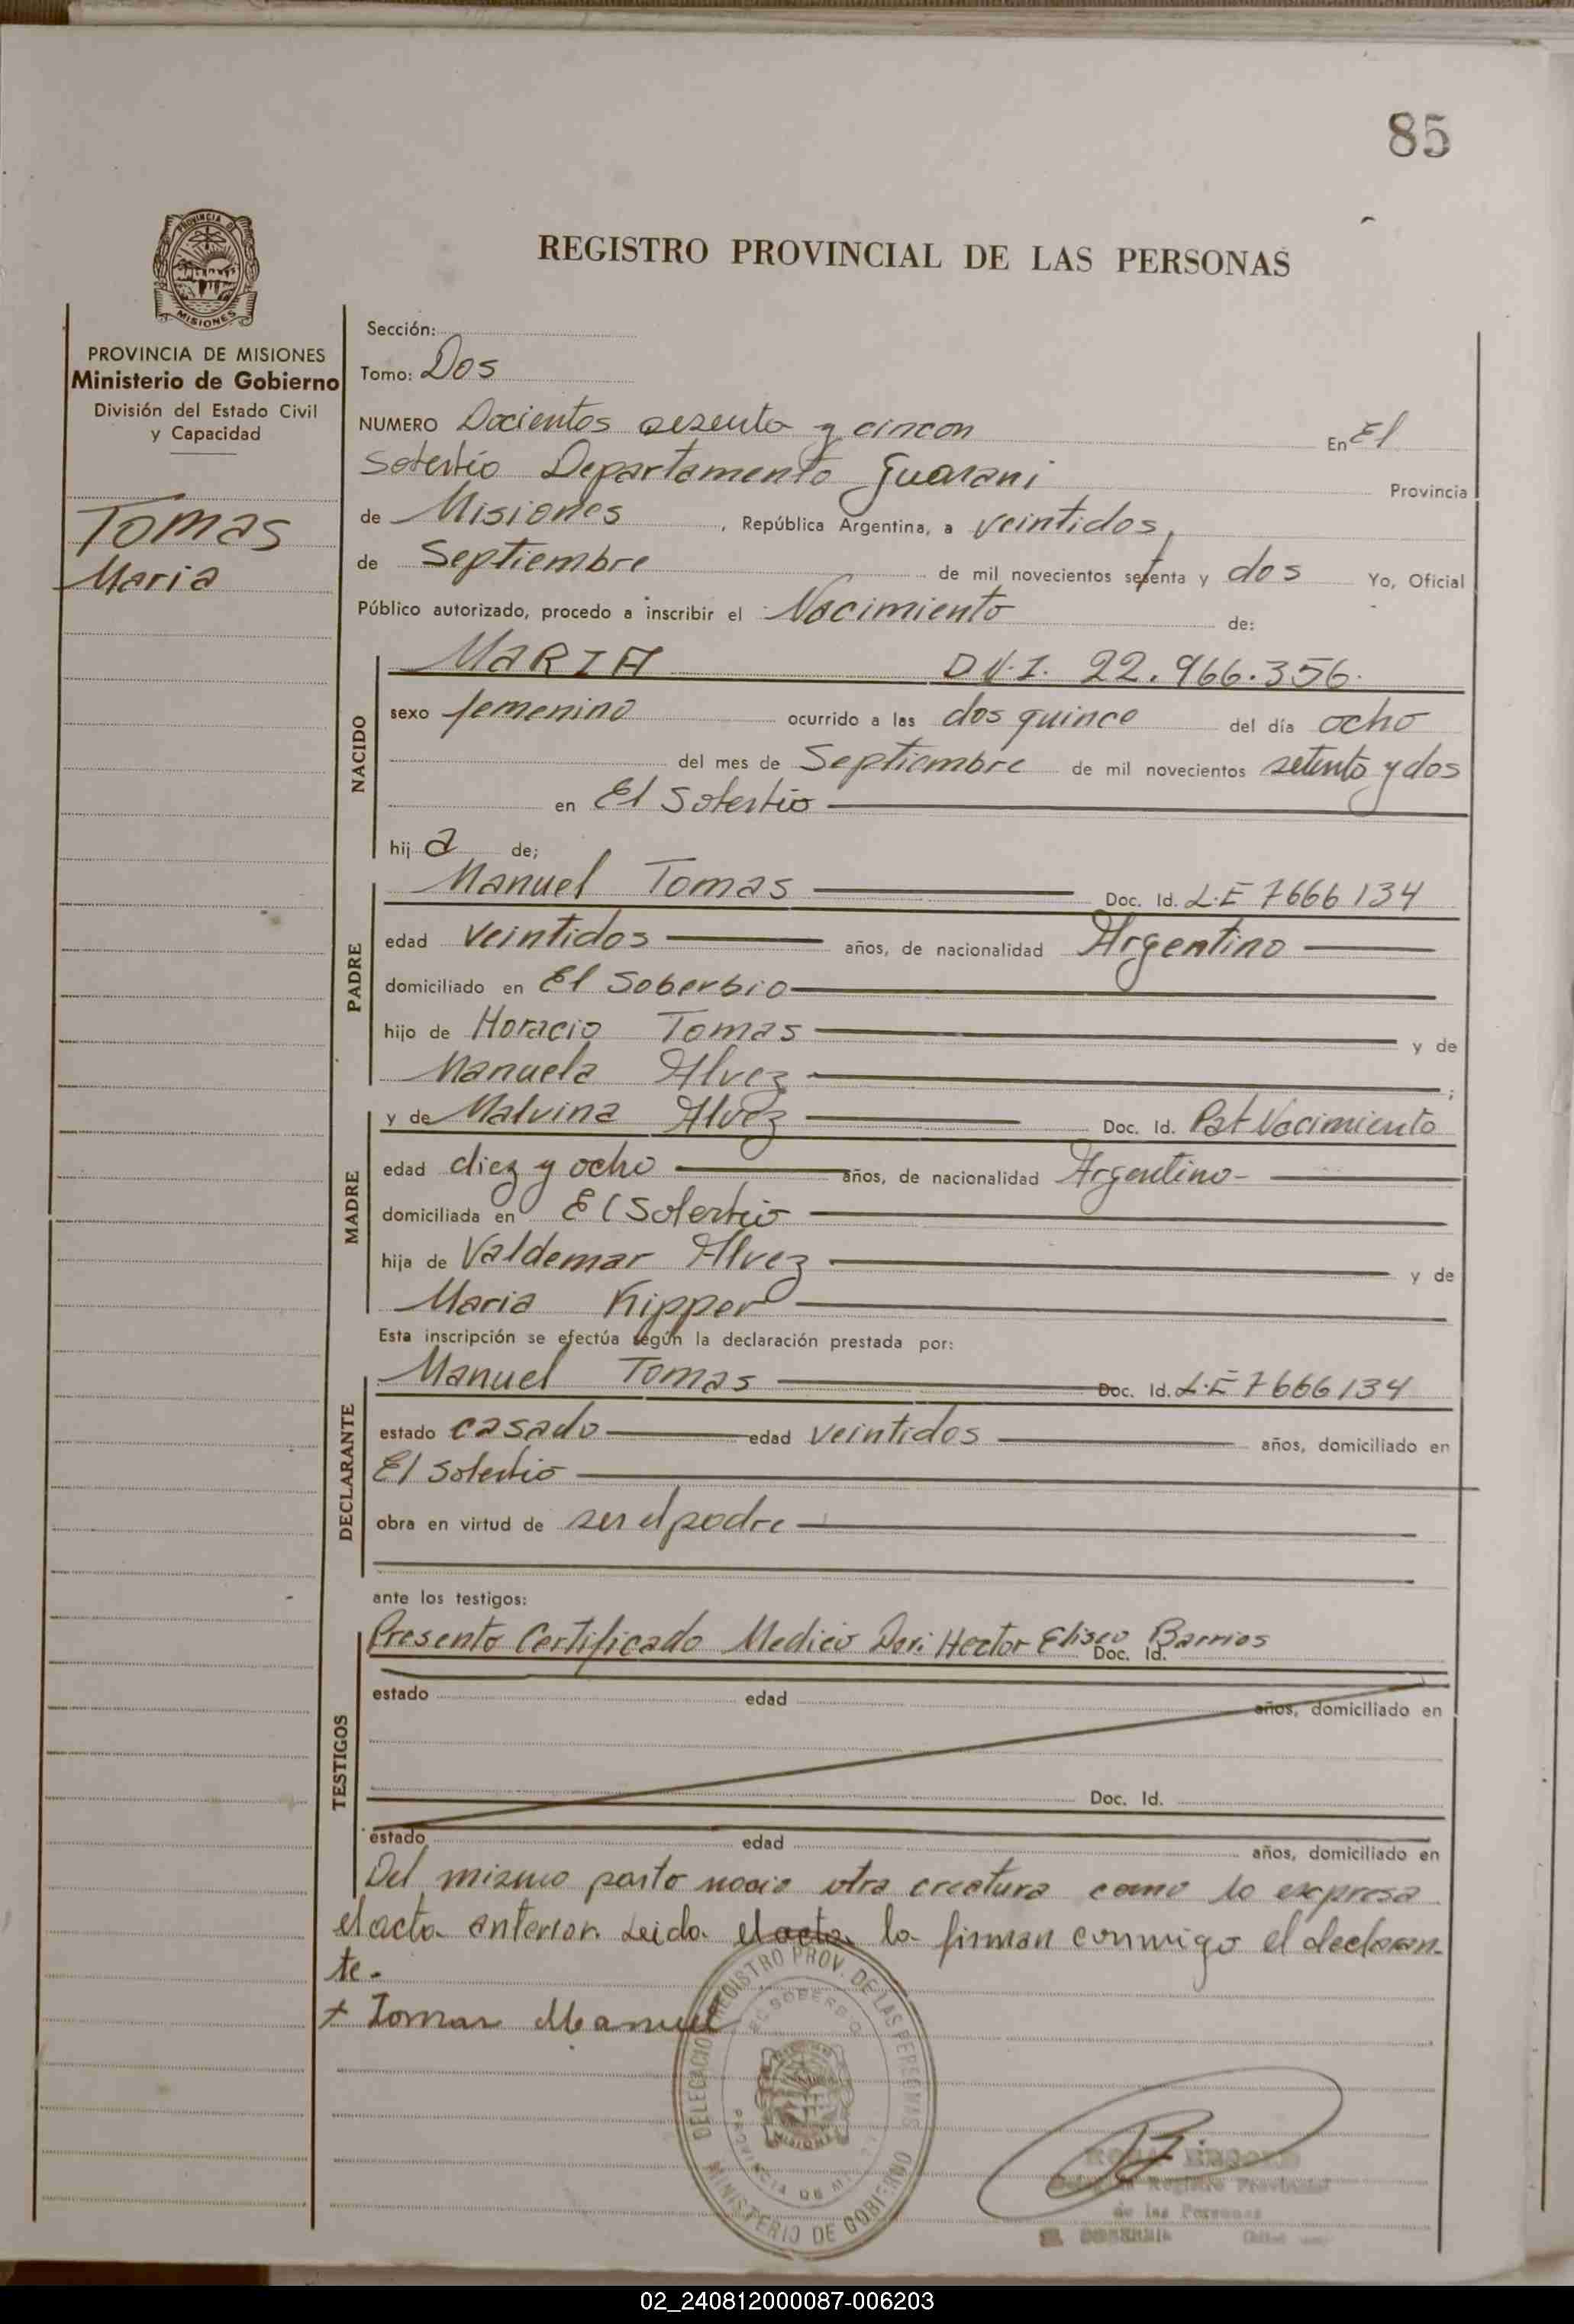 85
PROVINCIA DE
MISIONES
REGISTRO PROVINCIAL DE LAS PERSONAS
PROVINCIA DE MISIONES
Ministerio de Gobierno
División del Estado Civil
y Capacidad
Tomas
Maria
Sección:
Tomo: Dos
NUMERO Docientos sesenta y cinco En El
Soberbio Departamento Guarani Provincia
de Misiones, República Argentina, a veintidos
de Septiembre de mil novecientos setenta y dos Yo, Oficial
Público autorizado, procedo a inscribir el Nacimiento de:
NACIDO
MARIA D.N.I. 22.966.356.
sexo femenino ocurrido a las dos quince del día ocho
del mes de Septiembre de mil novecientos setenta y dos
en El Soberbio
hij a de;
PADRE
Manuel Tomas Doc. Id. L.E 7666134
edad veintidos años, de nacionalidad Argentino
domiciliado en El Soberbio
hijo de Horacio Tomas y de
Manuela Alvez ;
MADRE
y de Malvina Alvez Doc. Id. Pat Nacimiento
edad diez y ocho años, de nacionalidad Argentina
domiciliada en El Soberbio
hija de Valdemar Alvez y de
Maria Kipper
Esta inscripción se efectúa según la declaración prestada por:
DECLARANTE
Manuel Tomas Doc. Id. L.E 7666134
estado casado edad veintidos años, domiciliado en
El Soberbio
obra en virtud de ser el padre
ante los testigos:
TESTIGOS
Presento Certificado Medico Hector Eliseo Barrios Doc. Id.
estado edad años, domiciliado en
Doc. Id.
estado edad años, domiciliado en
Del mismo parto nacio otra creatura como lo expresa
el acta anterior. Leida el acta la firman conmigo el declaran-
te.
+ Tomas Manuel
DELEGACION REGISTRO PROV. DE LAS PERSONAS
EL SOBERBIO
PROVINCIA DE
MISIONES
MINISTERIO DE GOBIERNO
Registro Provincial
de las Personas
EL SOBERBIO
02_240812000087-006203